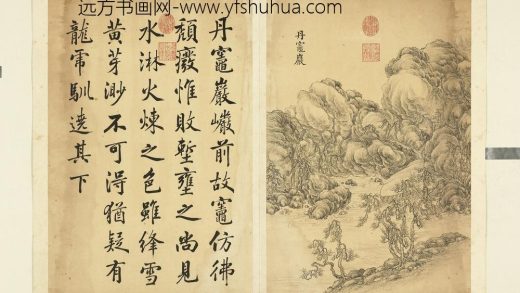 远方书画网-www.yfshuhua.com
丹竈巖
丹竈巖巖前故竈仿彿
頹廢惟敗塹壅之尚見
水淋火煉之色雖絳雪
黃芽渺不可得猶疑有
龍虎馴遶其下